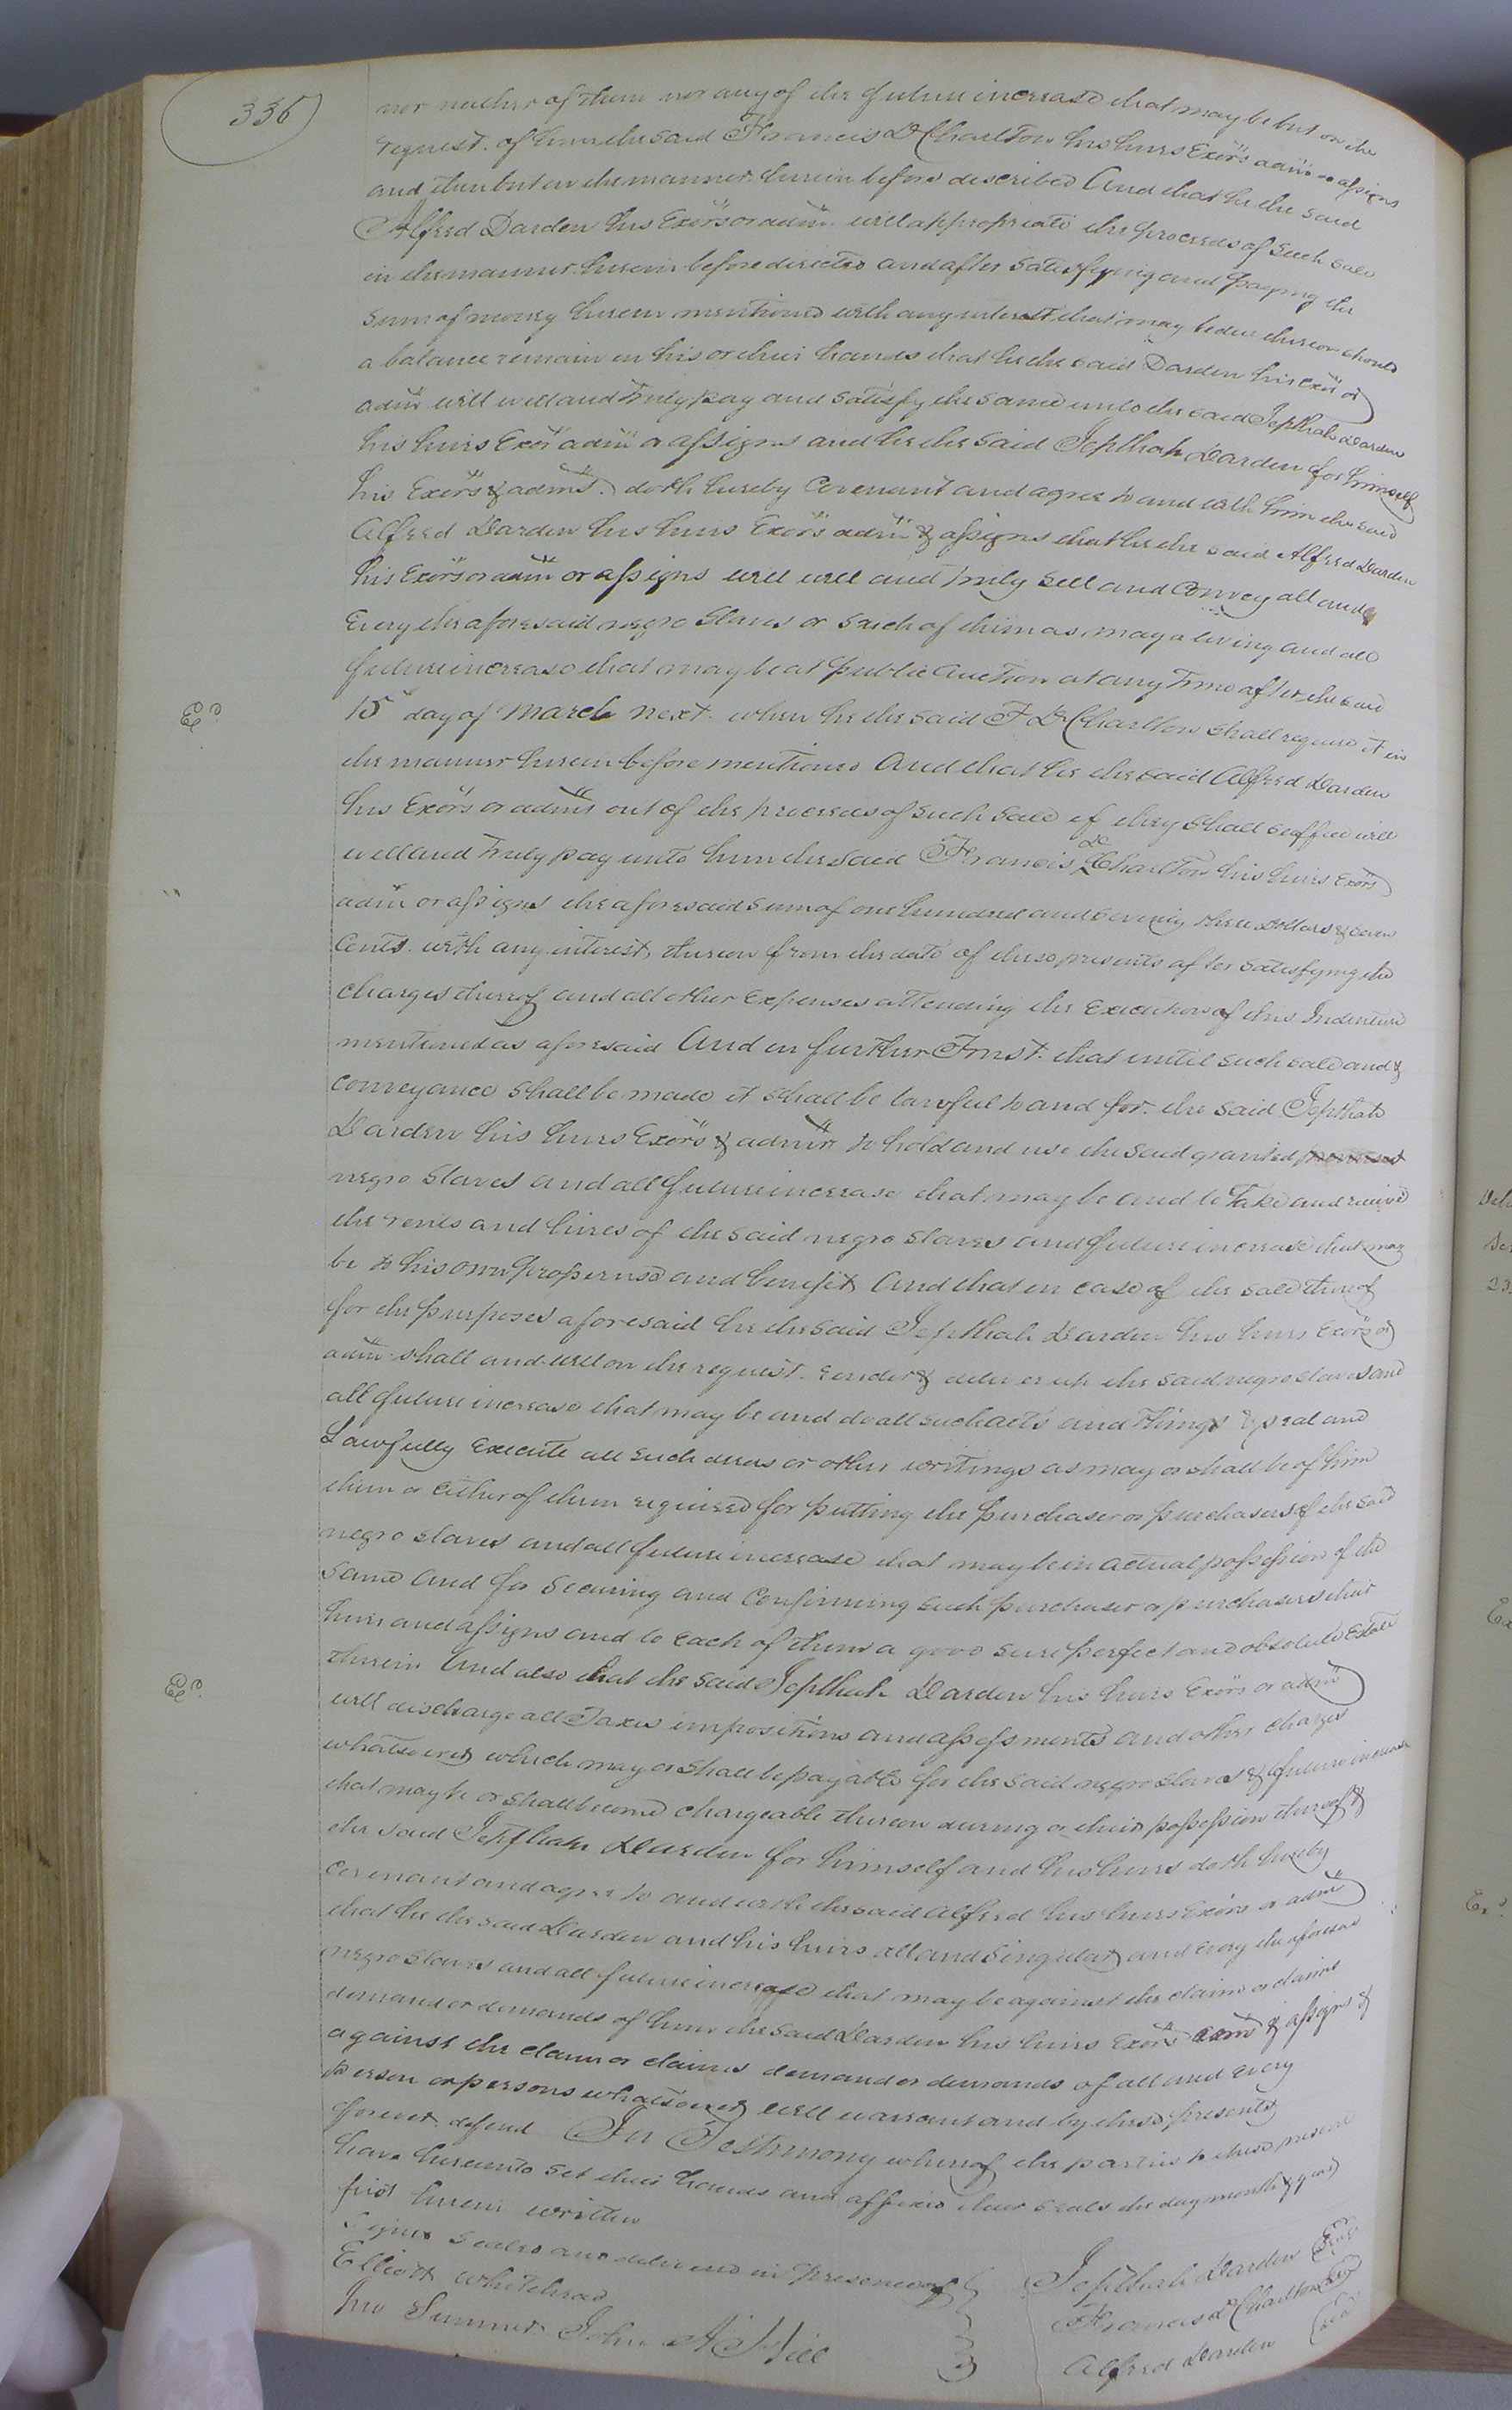 336
nor neither of them nor any of the future increase that may be but on the
request of him the said Francis D Charlton his heirs Exōrs adm̄ or assigns
and then but in the manner herein before described And that he the said
Alfred Darden his Exōrs or adm̄ will appropriate the proceeds of such sale
in the manner herein before directed and after satisfying and paying the
sum of money herein mentioned with any interest that may be due thereon should
a balance remain in his or their hands that he the said Darden his exōr or
adm̄ will well and truly pay and satisfy the same unto the said Jepthah Darden
his heirs Exōr adm̄ or assigns and he the said Jepthah Darden for himself
his Exōrs & adms̄ doth hereby Covenant and agree to and with him the said
Alfred Darden his heirs Exōrs adm̄ & assigns that he the said Alfred Darden
his Exōrs or adm̄ or assigns will well and truly sell and Convey all and
Every the aforesaid negro Slaves or such of them as may a living and all
future increase that may be at public auction at any time after the said
15 day of March next when he the said F D Charlton shall require it in
the manner herein before mentioned And that he the said Alfred Darden
his Exōrs or adms̄ out of the proceeds of such sale if they shall suffice will
well and truly pay unto him the said Francis D Charlton his heirs Exōrs
adm̄ or assigns the aforesaid sum of one hundred and seventy three Dollars & seven
Cents with any interest thereon from the date of these presents after satisfying the
charges thereof and all other Expenses attending the Execution of this Indenture
mentioned as aforesaid And in further Trust that until such sale and
conveyance shall be made it shall be lawful to and for the said Jepthah
Darden his heirs Exōrs & adm̄r to hold and use the said granted
negro Slaves and all future increase that may be and to Take and receive
the rents and hires of the said negro slaves and future increase that may
be to his own proper use and benefit And that in case of the sale thereof
for the purposes aforesaid he the said Jepthah Darden his heirs Exōrs or
adm̄ shall and will on the request render & deliver up the said negro slaves and
all future increase that may be and do all such acts and things & seal and
Lawfully Execute all such deeds or other writings as may or shall be of him
them or either of them required for putting the purchaser or purchasers of the said
negro slaves and all future increase that may be in actual possession of the
same and for securing and Confirming such purchaser or purchasers their
heirs and assigns and to each of them a good sure perfect and absolute Estate
therein And also that the said Jepthah Darden his heirs Exōrs or adm̄
will discharge all Taxes impositions and assessments and other charges
whatsoever which may or shall be payable for the said negro slaves & future increase
that may be or shall become chargeable thereon during or their possession thereof &
the said Jepthah Darden for himself and his heirs doth hereby
covenant and agree to and with the said Alfred his heirs Exōrs or adm̄
that he the said Darden and his heirs all and singular and every the aforesaid
negro slaves and all future increase that may be against the claim or claims
demand or demands of him the said Darden his heirs Exōrs adm̄ & assigns &
against the claim or claims demand or demands of all and every
person or persons whatsoever will warrant and by these presents
forever defend In Testimony whereof the parties to these presents
have hereunto set their hands and affixed their seals the day month & year
first herein written
Signed Sealed and delivered in presence of
Elliott Whitehead
Jno Sumner John A Hill
Jepthah Darden Seal
Francis D Charlton Seal
Alfred Darden Seal